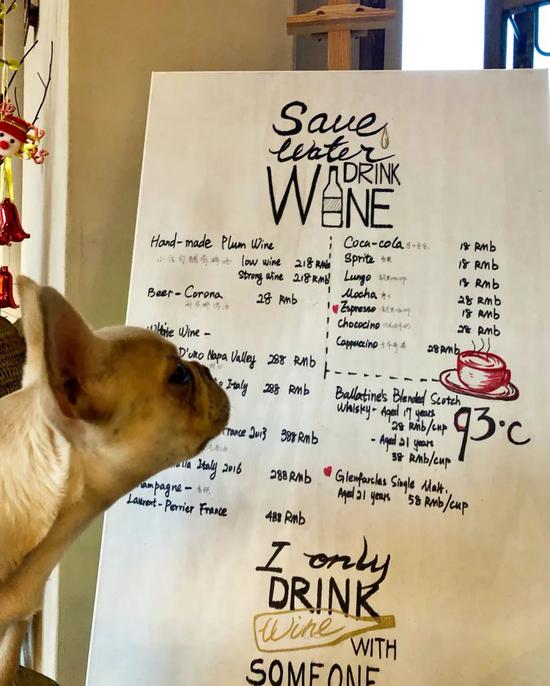 Save
Water
DRINK
WINE
Hand-made Plum Wine
low wine 218 RMB
Strong wine 218 RMB
Beer - Corona 28 RMB
White Wine -
D'uro Napa Valley 288 RMB
Italy 288 RMB
France 2013 388 RMB
Italy 2016 288 RMB
Champagne -
Laurent-Perrier France
488 RMB
Coca-cola 18 RMB
Sprite 18 RMB
Lungo 18 RMB
Mocha 28 RMB
Espresso 18 RMB
Chococino 28 RMB
Cappuccino 28 RMB
Ballatine's Blended Scotch
Whisky - Aged 17 years
28 RMB/cup
- Aged 21 years
38 RMB/cup
93°C
Glenfarclas Single Malt.
Aged 21 years 58 RMB/cup
I only
DRINK
Wine
WITH
SOMEONE